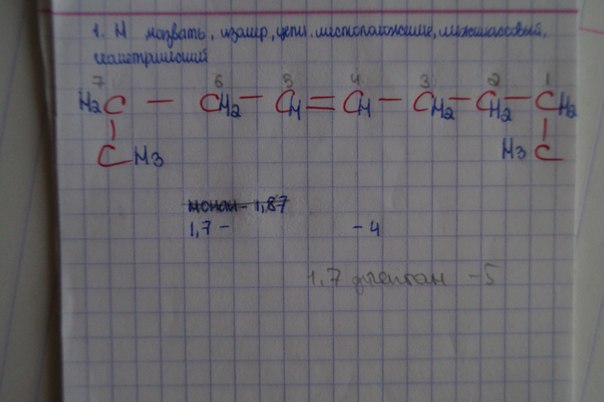 1. Н назвать, изомир, цепи. местоположение, межклассовый,
геометрический
7 6 5 4 3 2 1
H2C — CH2 — CH = CH — CH2 — CH2 — CH2
CH3 H3C
нонан - 1,87
1,7 - - 4
1,7 - 5